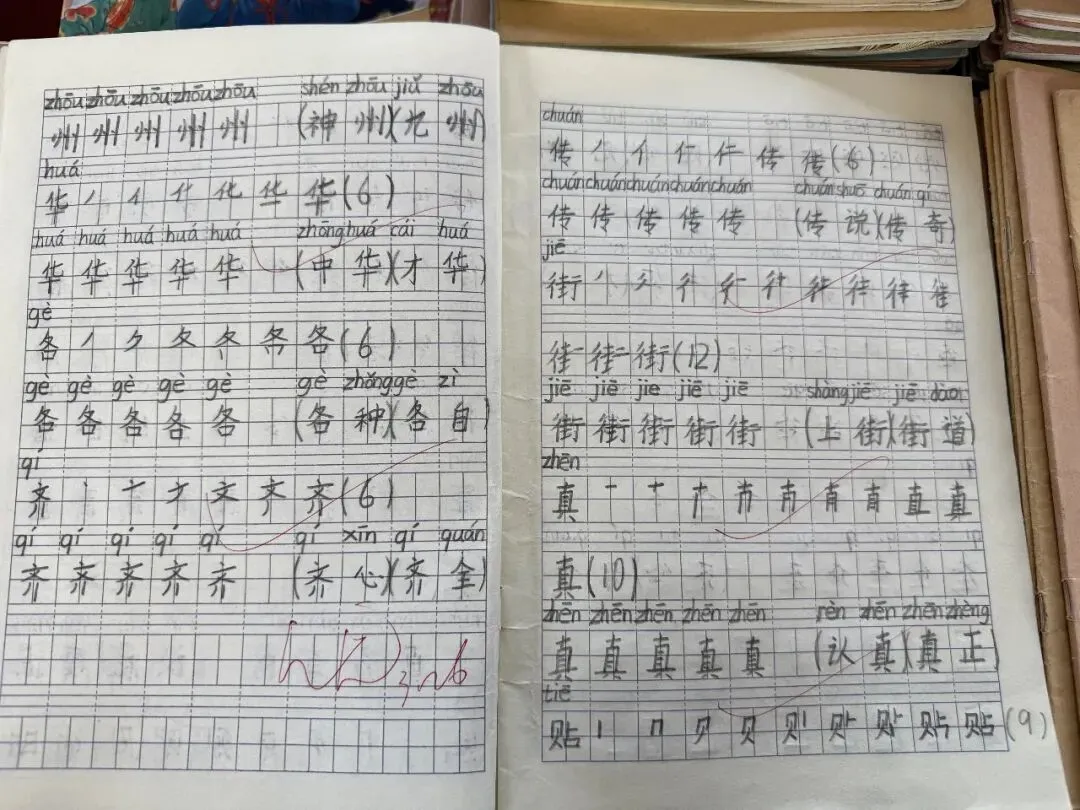 zhōu zhōu zhōu zhōu zhōu shén zhōu jiǔ zhōu
州 州 州 州 州 (神 州)(九 州)
huá
华 丿 亻 华 华(6)
huá huá huá huá huá zhōng huá cái huá
华 华 华 华 华 (中 华)(才 华)
gè
各 丿 夂 各(6)
gè gè gè gè gè gè zhǒng gè zì
各 各 各 各 各 (各 种)(各 自)
qí
齐 丶 亠 文 齐(6)
qí qí qí qí qí qí xīn qí quán
齐 齐 齐 齐 齐 (齐 心)(齐 全)
3.26
chuán
传 丿 亻 传 传(6)
chuán chuán chuán chuán chuán chuán shuō chuán qí
传 传 传 传 传 (传 说)(传 奇)
jiē
街 丿 彳
街(12)
jiē jiē jie jiē jiē shàng jiē jiē dào
街 街 街 街 街 (上 街)(街 道)
zhēn
真 一 十 直 真
真(10)
zhēn zhēn zhēn zhēn zhēn rèn zhēn zhēn zhèng
真 真 真 真 真 (认 真)(真 正)
tiē
贴 丨 冂 贝 贝 贴 贴(9)